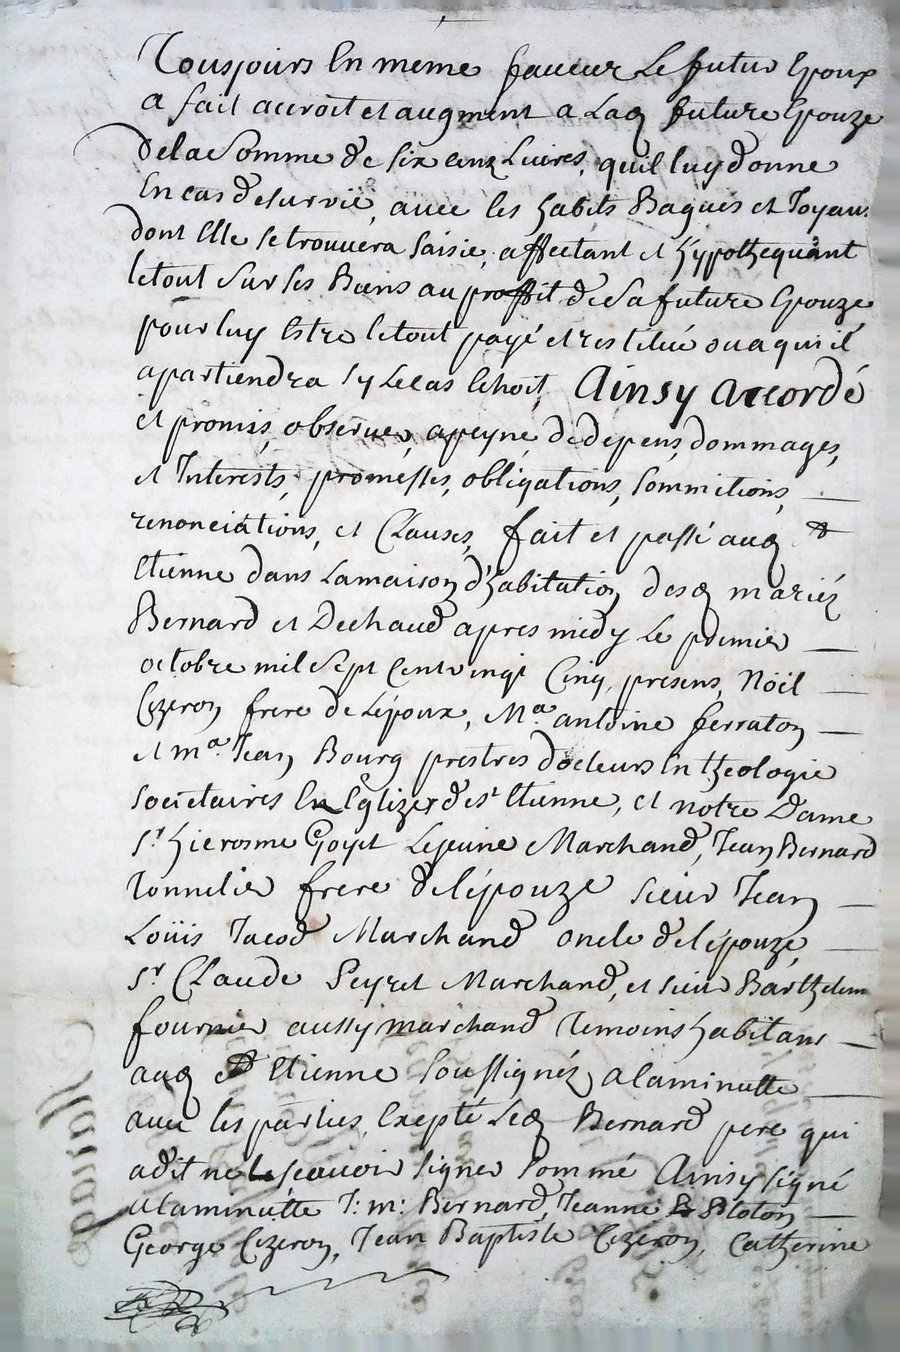 Tousjours En meme faveur Le futur Epoux
a fait accroit et augment a Laq future Epouze
De la Somme de six cent Livres, quil luy donne
En cas de survie, avec les habits Bagues et Joyau
dont Elle se trouvera saisie, affectant et hypothequant
le tout sur ses Biens au proffit de sa future Epouze
pour luy Estre le tout payé et restitué ou a qui il
apartiendra sy Le cas Echoit, Ainsy accordé
et promis, observer, a peyne de depens, dommages,
et Interests, promesses, obligations, soumitions,
renonciations, et Clauses, fait et passé auq St
Etienne dans La maison d'habitation desq mariéz
Bernard et Dechaud apres midy Le premier
octobre mil Sept Cent vingt Cinq, presens, Noël
Cizeron frere de L'époux, Me antoine ferraton
et me Jean Bourg prestres docteurs En theologie
societaires En L'eglize de st Etienne, et notre Dame
sr hierosme Goyet Lejeune Marchand, Jean Bernard
Tonnelier frere de l'épouze sieur Jean
Loüis Jacod Marchand oncle de l'épouze,
sr Claude Peyret Marchand, et sieur Barthelem
fournier aussy marchand Temoins habitans
auq St Etienne Soussignéz a la minutte
avec les parties, Exepté Leq Bernard pere qui
a dit ne le sçavoir signer sommé Ainsy signé
a la minutte J: m: Bernard, Jeanne Ploton
George Cizeron, Jean Baptiste Cizeron, Catherine